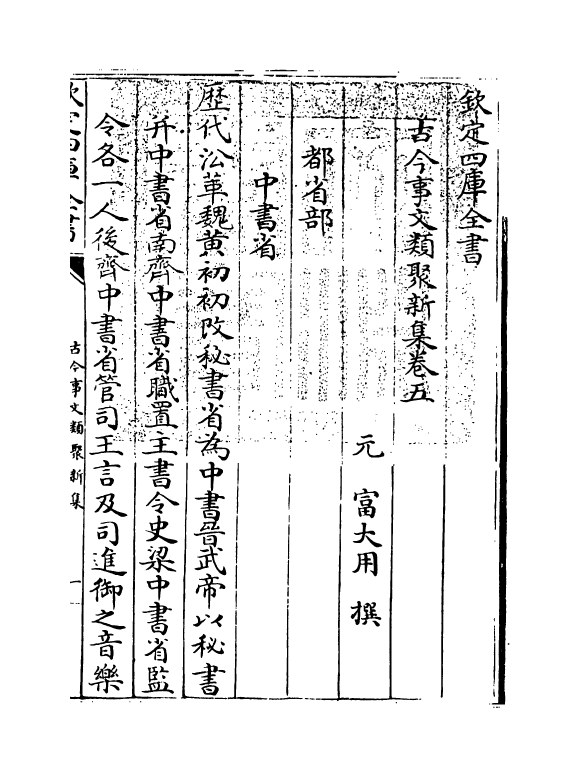 欽定四庫全書
古今事文類聚新集卷五
元 富大用 撰
都省部
中書省
歴代㳂革魏黄初初改秘書省為中書晉武帝以秘書
并中書省南齊中書省職置主書令史梁中書省監
令各一人後齊中書省管司王言及司進御之音樂
欽定四庫全書
古今事文類聚新集
一